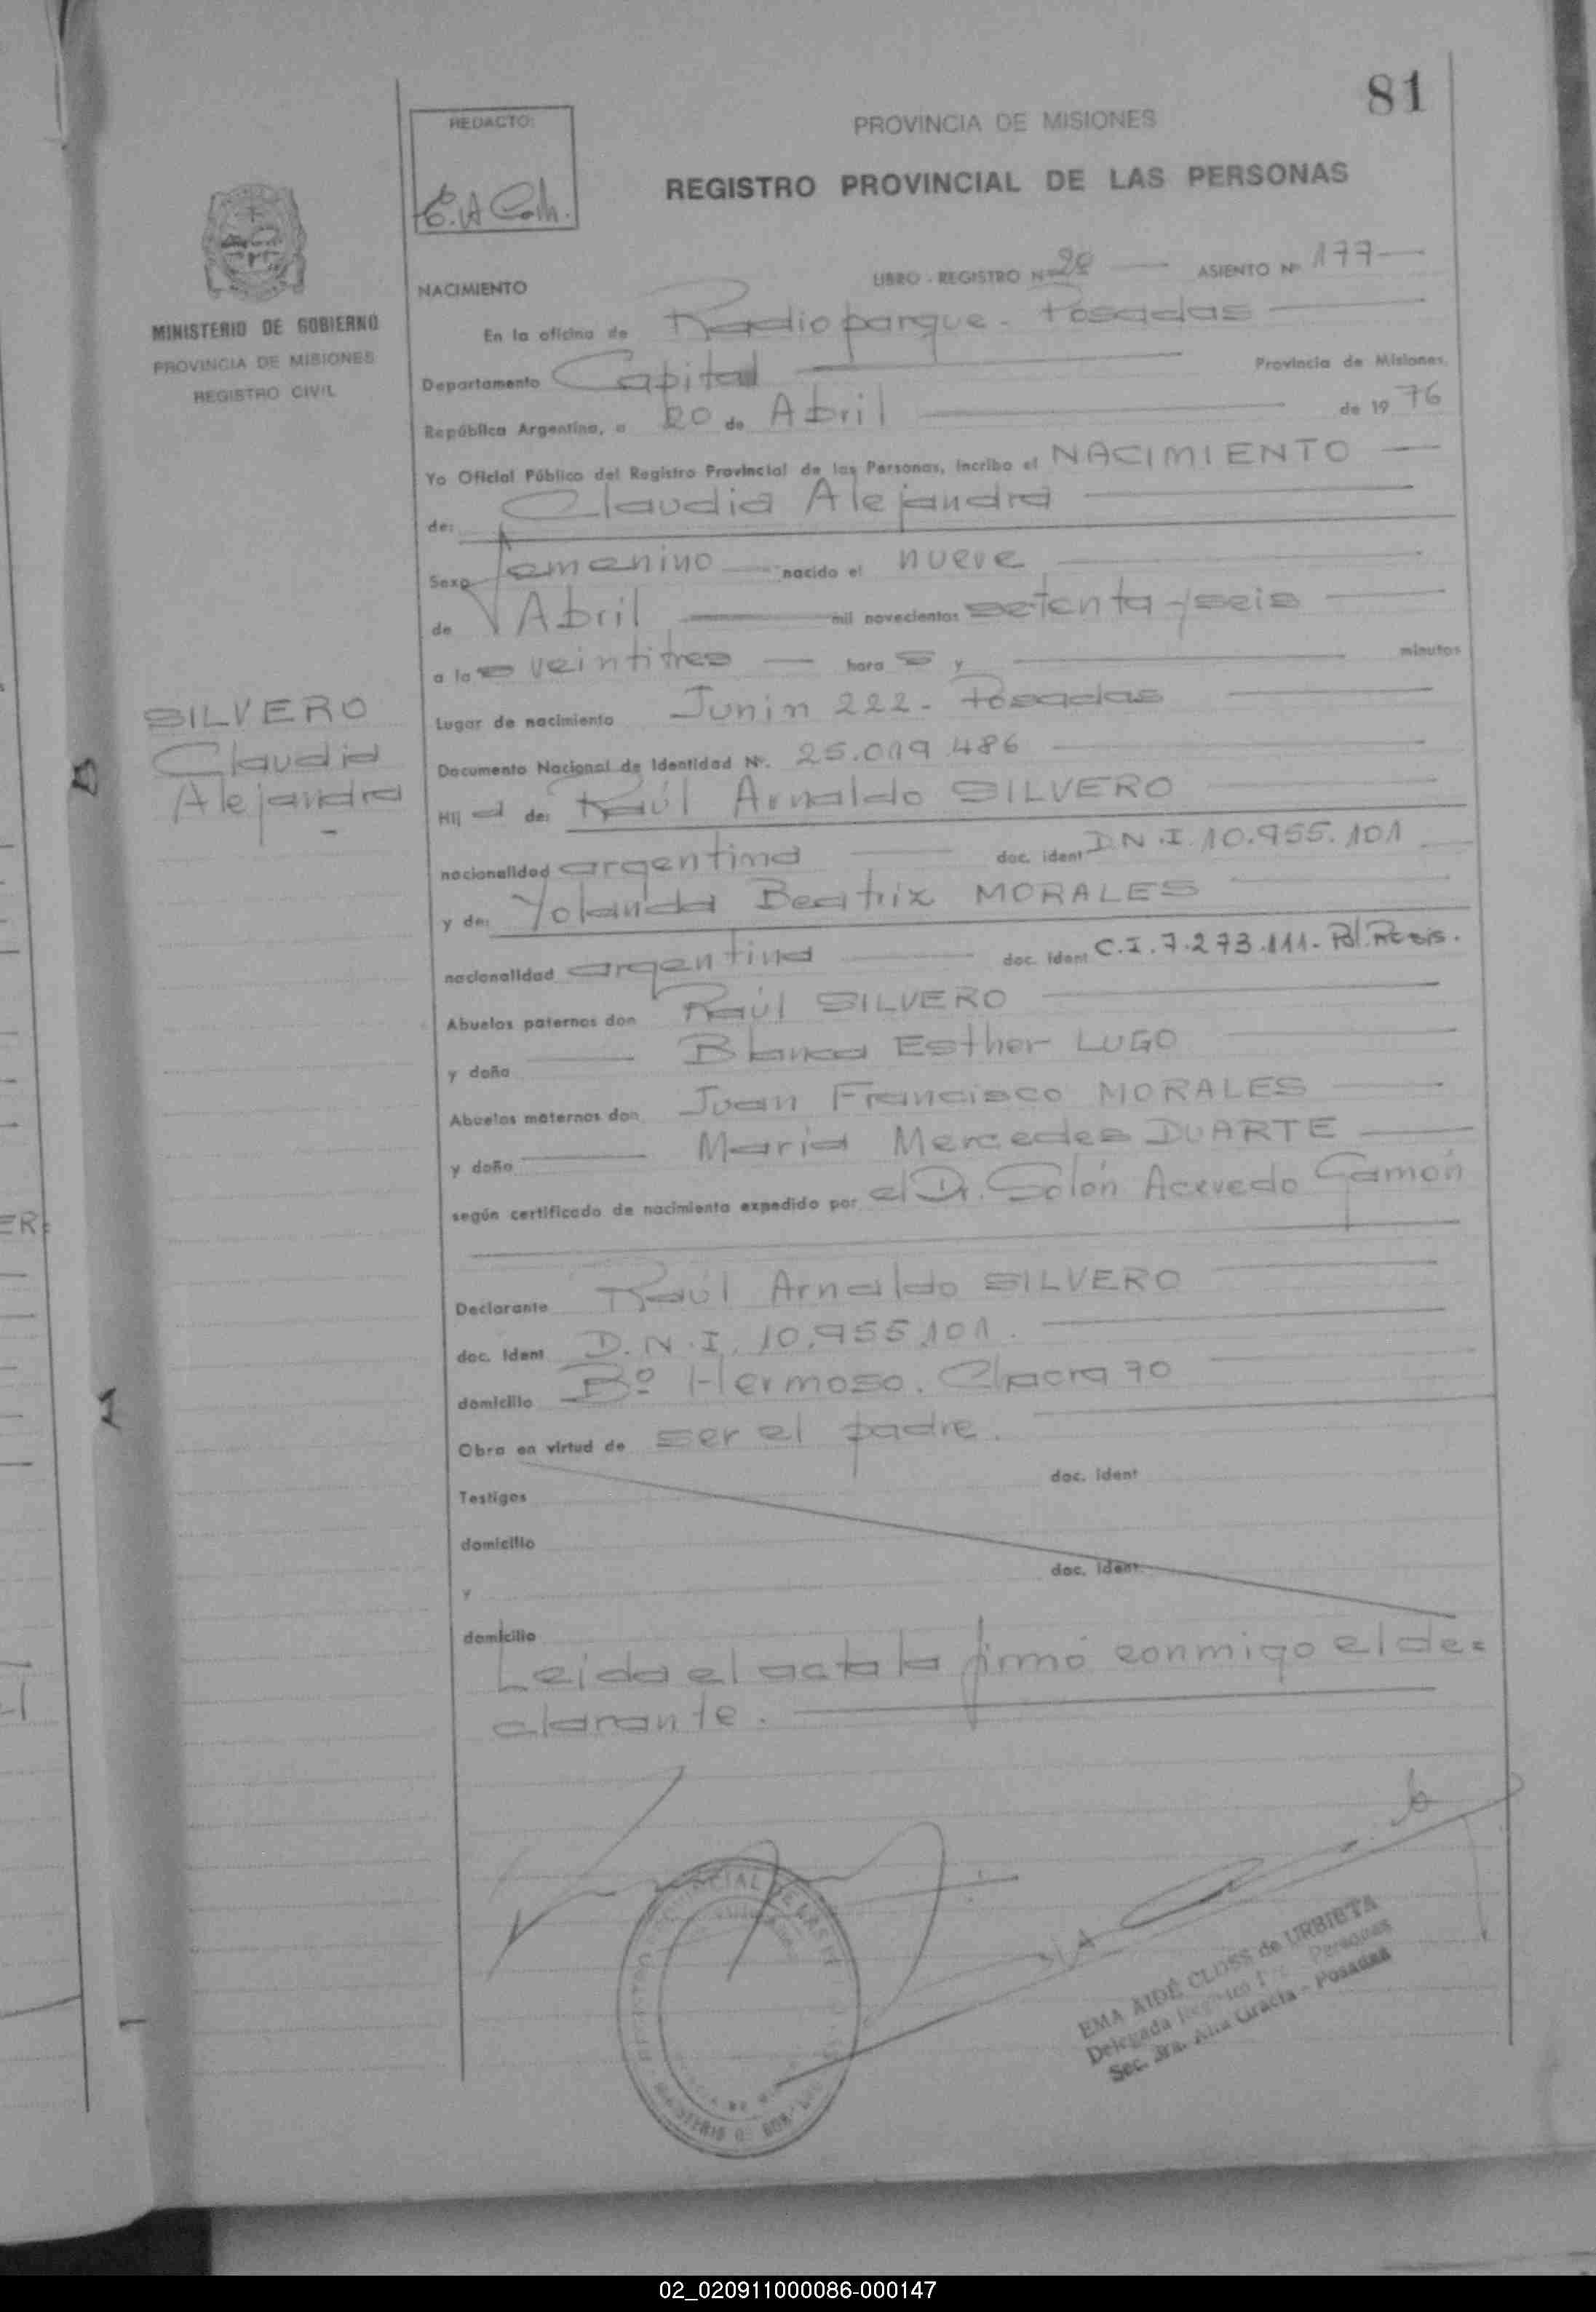 81
REDACTO:
PROVINCIA DE MISIONES
REGISTRO PROVINCIAL DE LAS PERSONAS
MINISTERIO DE GOBIERNO
PROVINCIA DE MISIONES
REGISTRO CIVIL
NACIMIENTO
LIBRO - REGISTRO Nº 2º ASIENTO Nº 177
En la oficina de Radioparque - Posadas
Departamento Capital Provincia de Misiones.
República Argentina, a 20 de Abril de 1976
Yo Oficial Público del Registro Provincial de las Personas, incribo el NACIMIENTO
de: Claudia Alejandra
Sexo femenino nacido el nueve
de Abril mil novecientos setenta y seis
a las veintitres horas y minutos
SILVERO
Claudia
Alejandra
Lugar de nacimiento Junin 222 - Posadas
Documento Nacional de Identidad Nº. 25.019.486
Hija de: Raúl Arnaldo SILVERO
nacionalidad argentina doc. ident D.N.I. 10.955.101
y de: Yolanda Beatriz MORALES
nacionalidad argentina doc. ident C.I. 7.273.111 - Pol.
Abuelos paternos don Raúl SILVERO
y doña Blanca Esther LUGO
Abuelos maternos don Juan Francisco MORALES
y doña Maria Mercedes DUARTE
según certificado de nacimiento expedido por el Dr. Solón Acevedo Gamón
Declarante Raúl Arnaldo SILVERO
doc. ident D.N.I. 10.955.101.
domicilio Bº Hermoso. Chacra 70
Obra en virtud de ser el padre.
Testigos doc. ident
domicilio
y doc. ident
domicilio
Leida el acta la firmó conmigo el de=
clarante.
EMA AIDÉ CLOSS de URBIETA
Delegada Personas
Sec. Alta Gracia - POSADAS
02_020911000086-000147